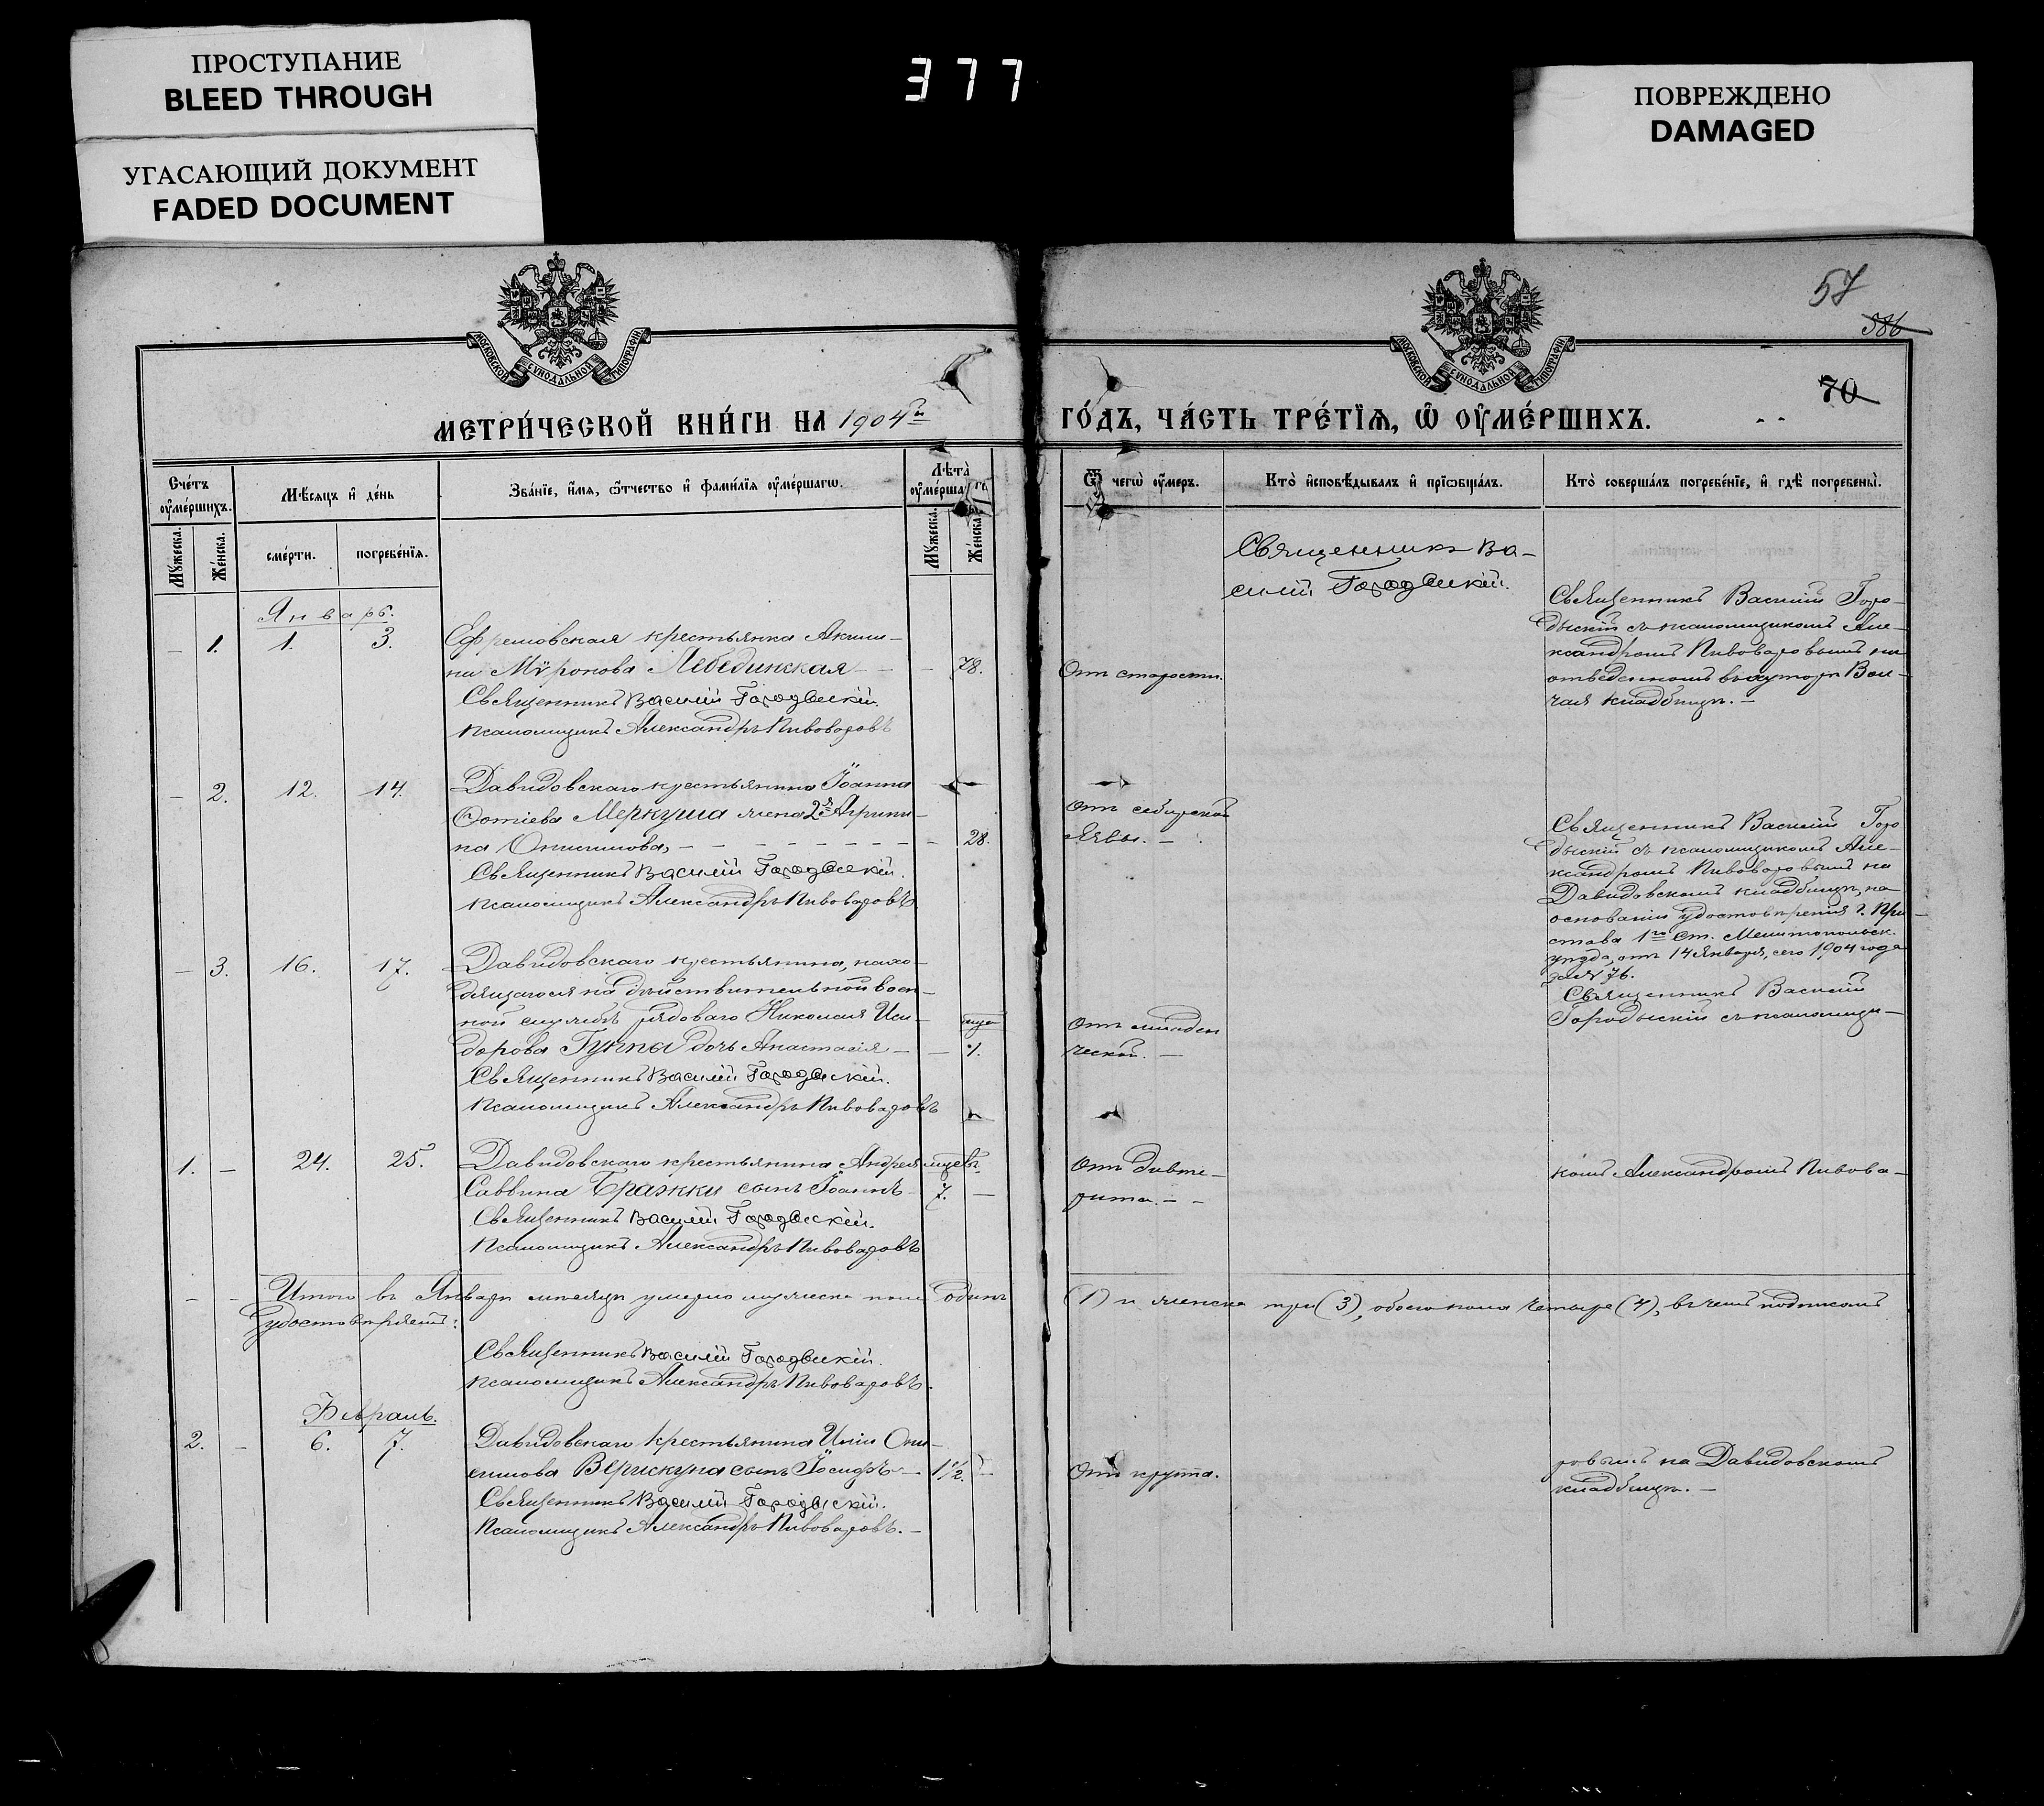 ПРОСТУПАНИЕ
BLEED THROUGH
УГАСАЮЩИЙ ДОКУМЕНТ
FADED DOCUMENT
377
ПОВРЕЖДЕНО
DAMAGED
57
586
70
МОСКОВСКОЙ СѴНОДАЛЬНОЙ ТИПОГРАФІИ
МОСКОВСКОЙ СѴНОДАЛЬНОЙ ТИПОГРАФІИ
МЕТРИ́ЧЕСКОЙ КНИ́ГИ НА 1904й
ГО́ДЪ, ЧА́СТЬ ТРЕ́ТЇѦ, Ѡ ОУ҆МЕ́РШИХЪ.
Сче́тъ оу҆ме́ршихъ.
Мꙋ́жеска.
Же́нска.
Мѣ́сѧцъ и҆ де́нь
сме́рти.
погребе́нїѧ.
Зва́нїе, и҆́мѧ, ѻ҆́тчество и҆ фами́лїѧ оу҆ме́ршагѡ.
Лѣ́та оу҆ме́ршагѡ
Мꙋ́жеска.
Же́нска.
Ѿ чегѡ̀ оу҆́меръ.
Кто̀ и҆сповѣ́дывалъ и҆ прїѡбща́лъ.
Кто̀ соверша́лъ погребе́нїе, и҆ гдѣ̀ погребены̀.
Январь.
– 1. 1. 3. Ефремовская крестьянка Акили-
на Мѵронова Лебединская – – 78.
Священникъ Василій Городыскій.
псаломщикъ Александръ Пивоваровъ
Отъ старости.
Священникъ Ва-
силій Городыскій.
Священникъ Василій Горо-
дыскій съ псаломщикомъ Але-
ксандромъ Пивоваровымъ на
отведенномъ въ хуторѣ Вол-
чая кладбищѣ. –
– 2. 12. 14. Давидовскаго крестьянина Іоанна
Фотіева Меркуша жена 2я Агрипи-
на Онисимова, – – 28.
Священникъ Василій Городыскій.
псаломщикъ Александръ Пивоваровъ
Отъ сибирской
язвы. –
Священникъ Василій Горо
дыскій съ псаломщикомъ Але-
ксандромъ Пивоваровымъ на
Давидовскомъ кладбищѣ, на
основаніи удостовѣренія г. При-
става 1го Ст. Мелитопольск.
уѣзда, отъ 14 Января, сего 1904 года
за № 76.
– 3. 16. 17. Давидовскаго крестьянина, нахо-
дящагося на дѣйствительной воен-
ной службѣ рядоваго Николая Иси-
дорова Гуппа дочь Анастасія – – 1.
Священникъ Василій Городыскій.
псаломщикъ Александръ Пивоваровъ
Отъ младен
ческой. –
Священникъ Василій
Городыскій съ псаломщи-
1. – 24. 25. Давидовскаго крестьянина Андрея мцевъ.
Саввина Бражки сынъ Іоаннъ – 7. –
Священникъ Василій Городыскій.
Псаломщикъ Александръ Пивоваровъ
Отъ дифте-
рита. – –
комъ Александромъ Пивова-
– – Итого въ Январѣ мѣсяцѣ умерло мужеска пола одинъ
(1) и женска три (3), обоего пола четыре (4), въ чемъ подписомъ
удостовѣряемъ:
Священникъ Василій Городыскій.
псаломщикъ Александръ Пивоваровъ.
Февраль.
2. – 6. 7. Давидовскаго крестьянина Иліи Они-
симова Верискуна сынъ Іосифъ – 1 1/2. –
Священникъ Василій Городыскій.
Псаломщикъ Александръ Пивоваровъ. –
Отъ крупа.
ровымъ на Давидовскомъ
кладбищѣ. –